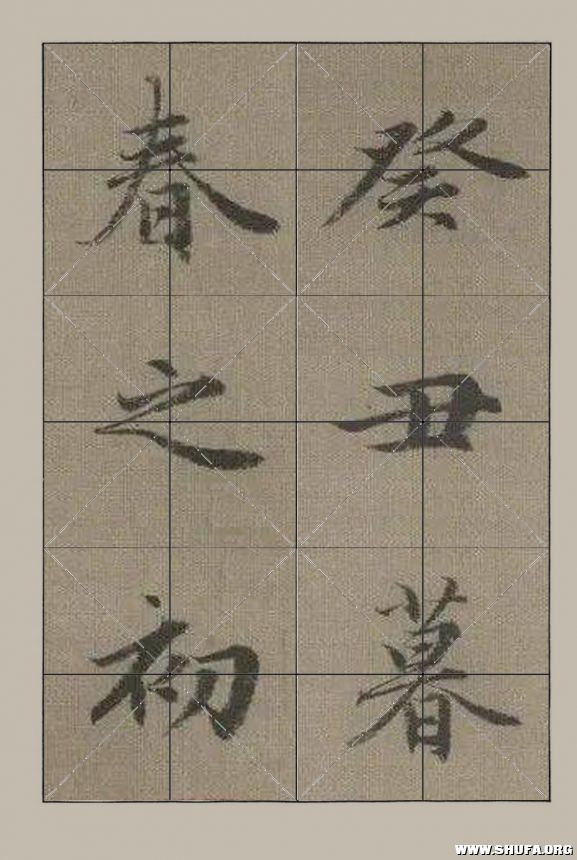 癸丑暮
春之初
WWW.SHUFA.ORG